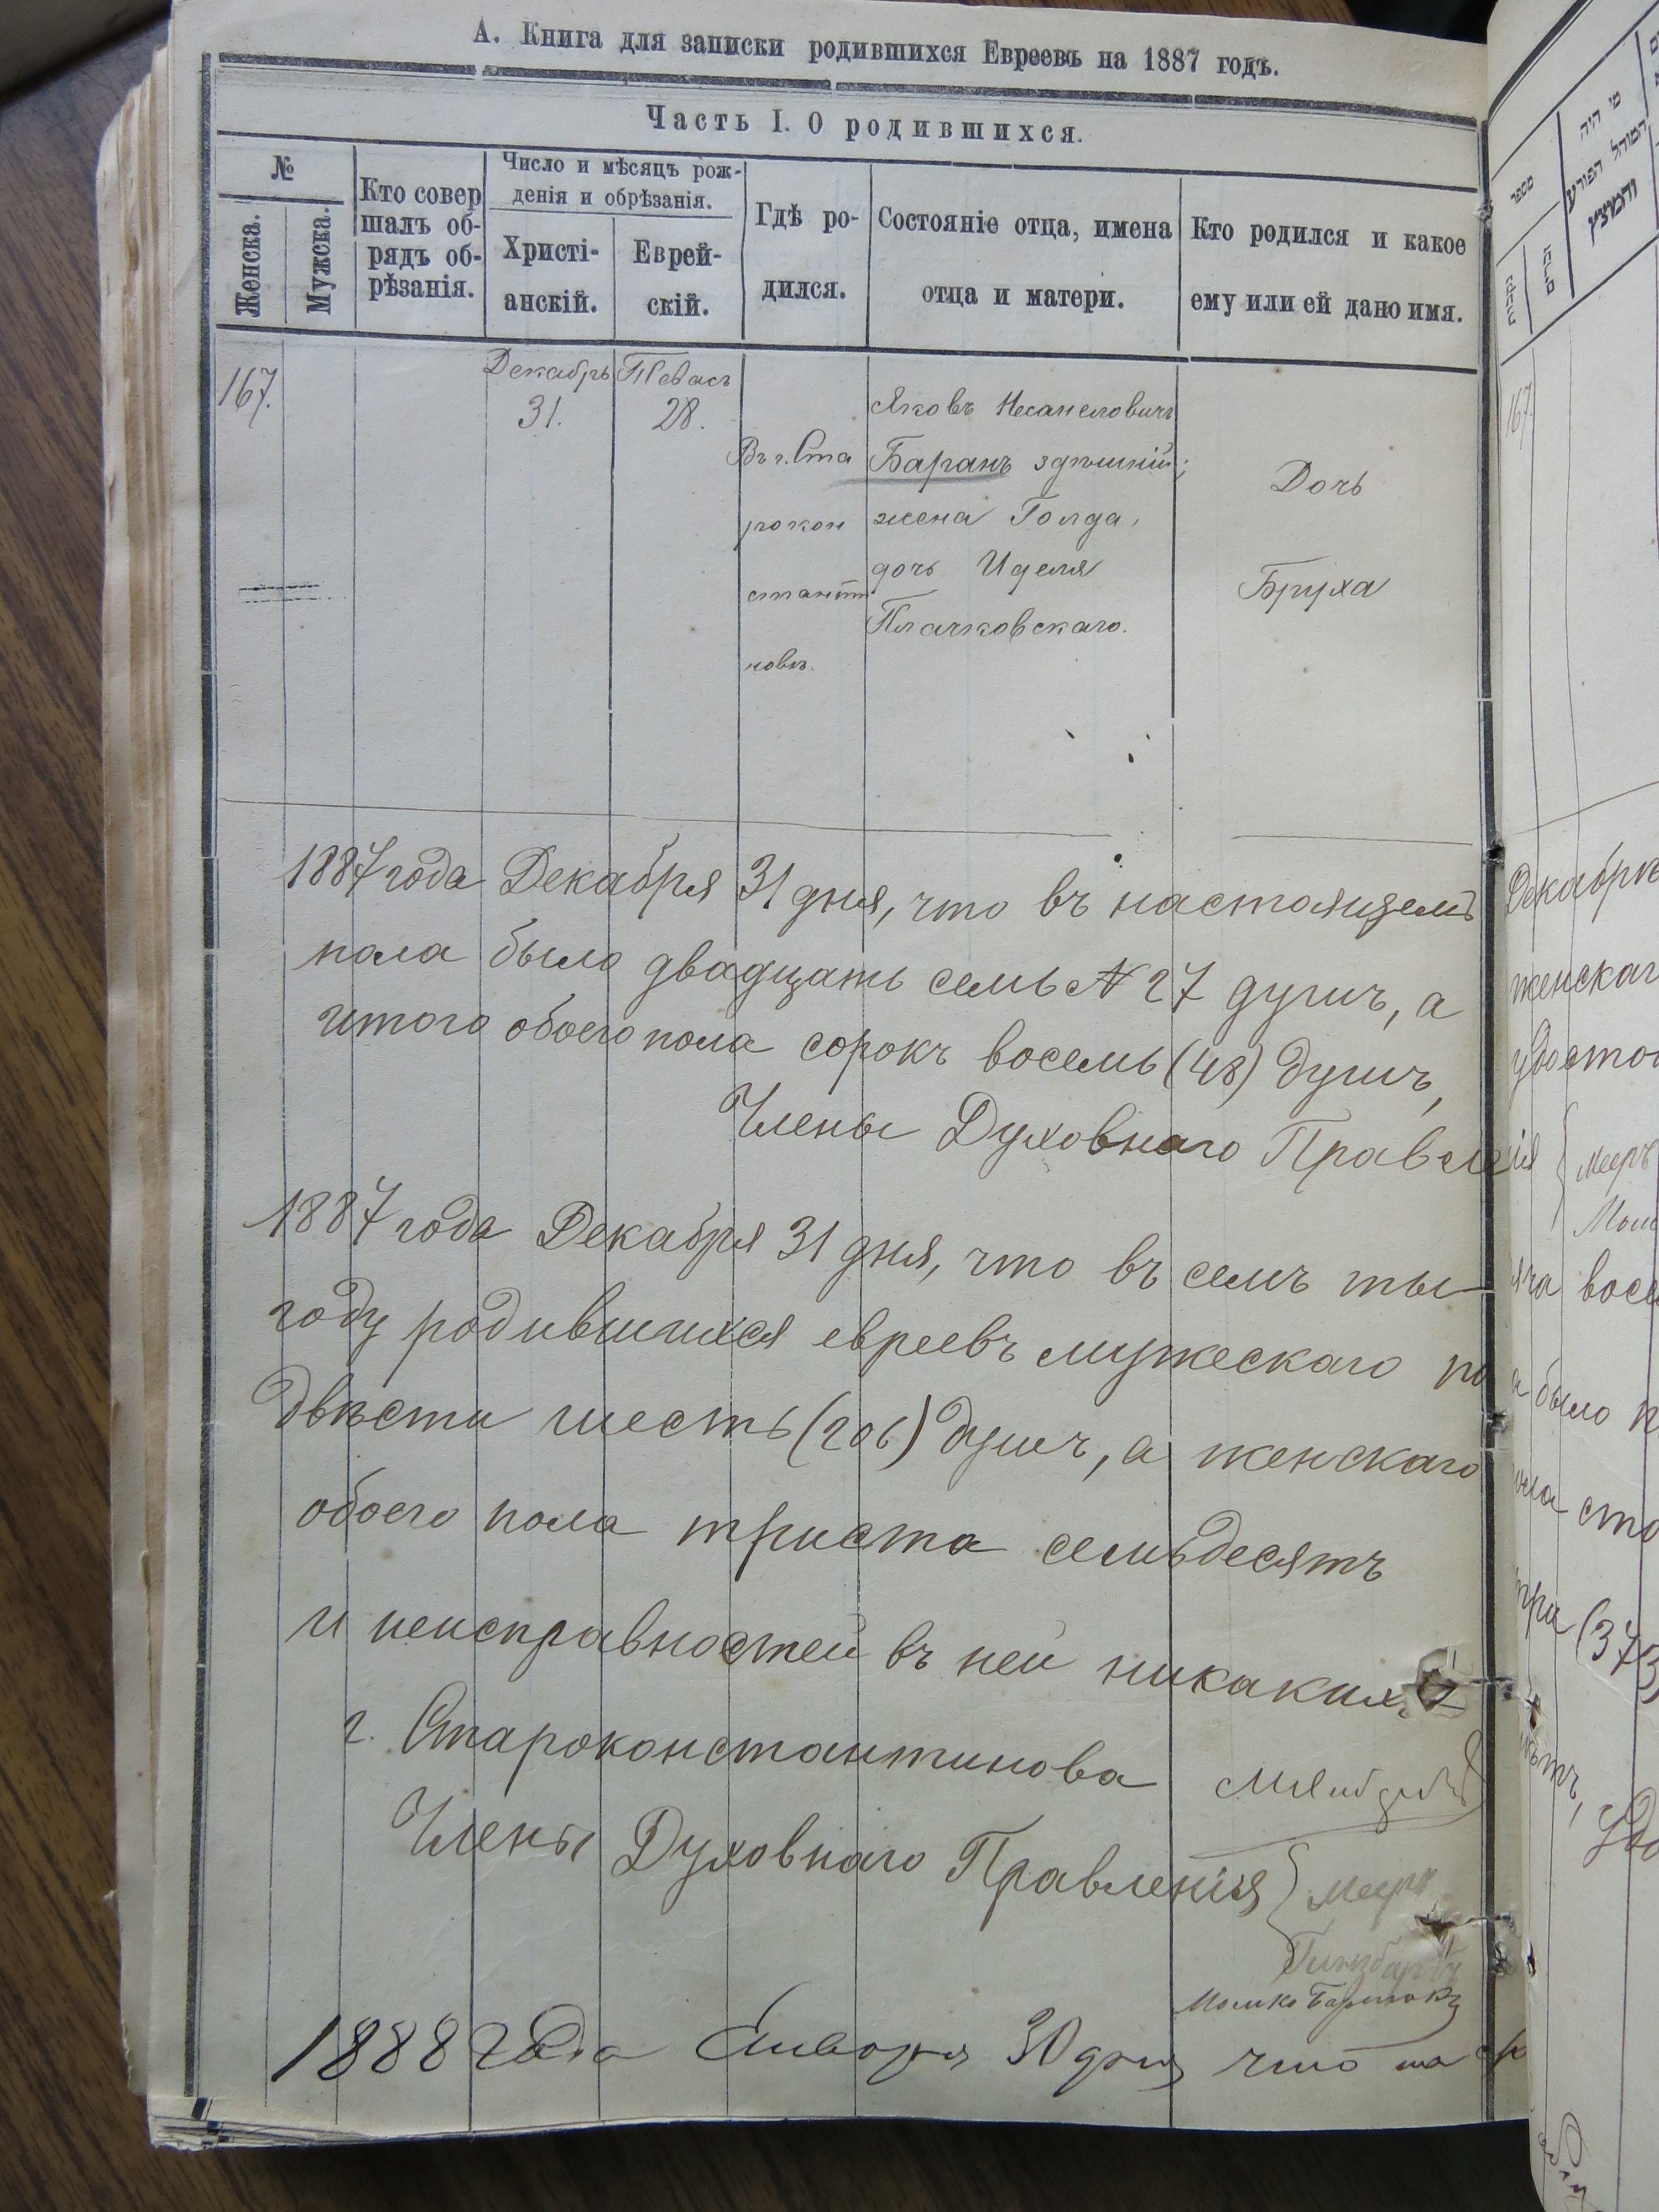 А. Книга для записки родившихся Евреевъ на 1887 годъ.
Часть I. О родившихся.
№
Женска.
Мужска.
Кто совер
шалъ об-
рядъ об-
рѣзанія.
Число и мѣсяцъ рож-
денія и обрѣзанія.
Христі-
анскій.
Еврей-
скій.
Гдѣ ро-
дился.
Состояніе отца, имена
отца и матери.
Кто родился и какое
ему или ей дано имя.
167.
Декабрь
31.
28.
Въ г. Ста
рокон
станти
новѣ.
Яковъ Несанеловичъ
Баранъ здѣшній;
жена Голда,
дочь Иделя
Плачковскаго.
Дочь
Бруха
1887 года Декабря 31 дня, что въ настоящемъ
пола было двадцать семь 27 душъ, а
итого обоего пола сорокъ восемь (48) душъ,
Члены Духовнаго Правленія
1887 года Декабря 31 дня, что въ семъ ты-
году родившихся евреевъ мужескаго по
двѣсти шесть (206) душъ, а женскаго
обоего пола триста семьдесятъ
и неисправностей въ ней никакихъ
г. Староконстантинова
Члены Духовнаго Правленія
Мееръ
Гинзбаргъ
Мошко
1888 года Января 30 дня что
מספר
מי היה
המוהל
167
Декабрѣ
женскаг
удосто
Мееръ
восе
было
сто
три (373)